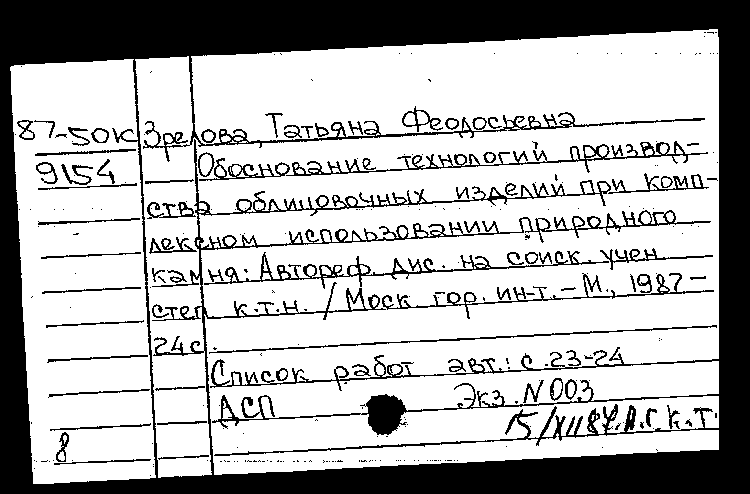 87-50К Зрелова, Татьяна Феодосьевна
9154 Обоснование технологий производ-
ства облицовочных изделий при комп-
лексном использовании природного
камня: Автореф. дис. на соиск. учен
степ к.т.н. / Моск гор. ин-т. – М., 1987 –
24с.
Список работ авт.: с. 23-24
ДСП Экз. N 003
8 15/XII 87г. Л.Г. К.Т.